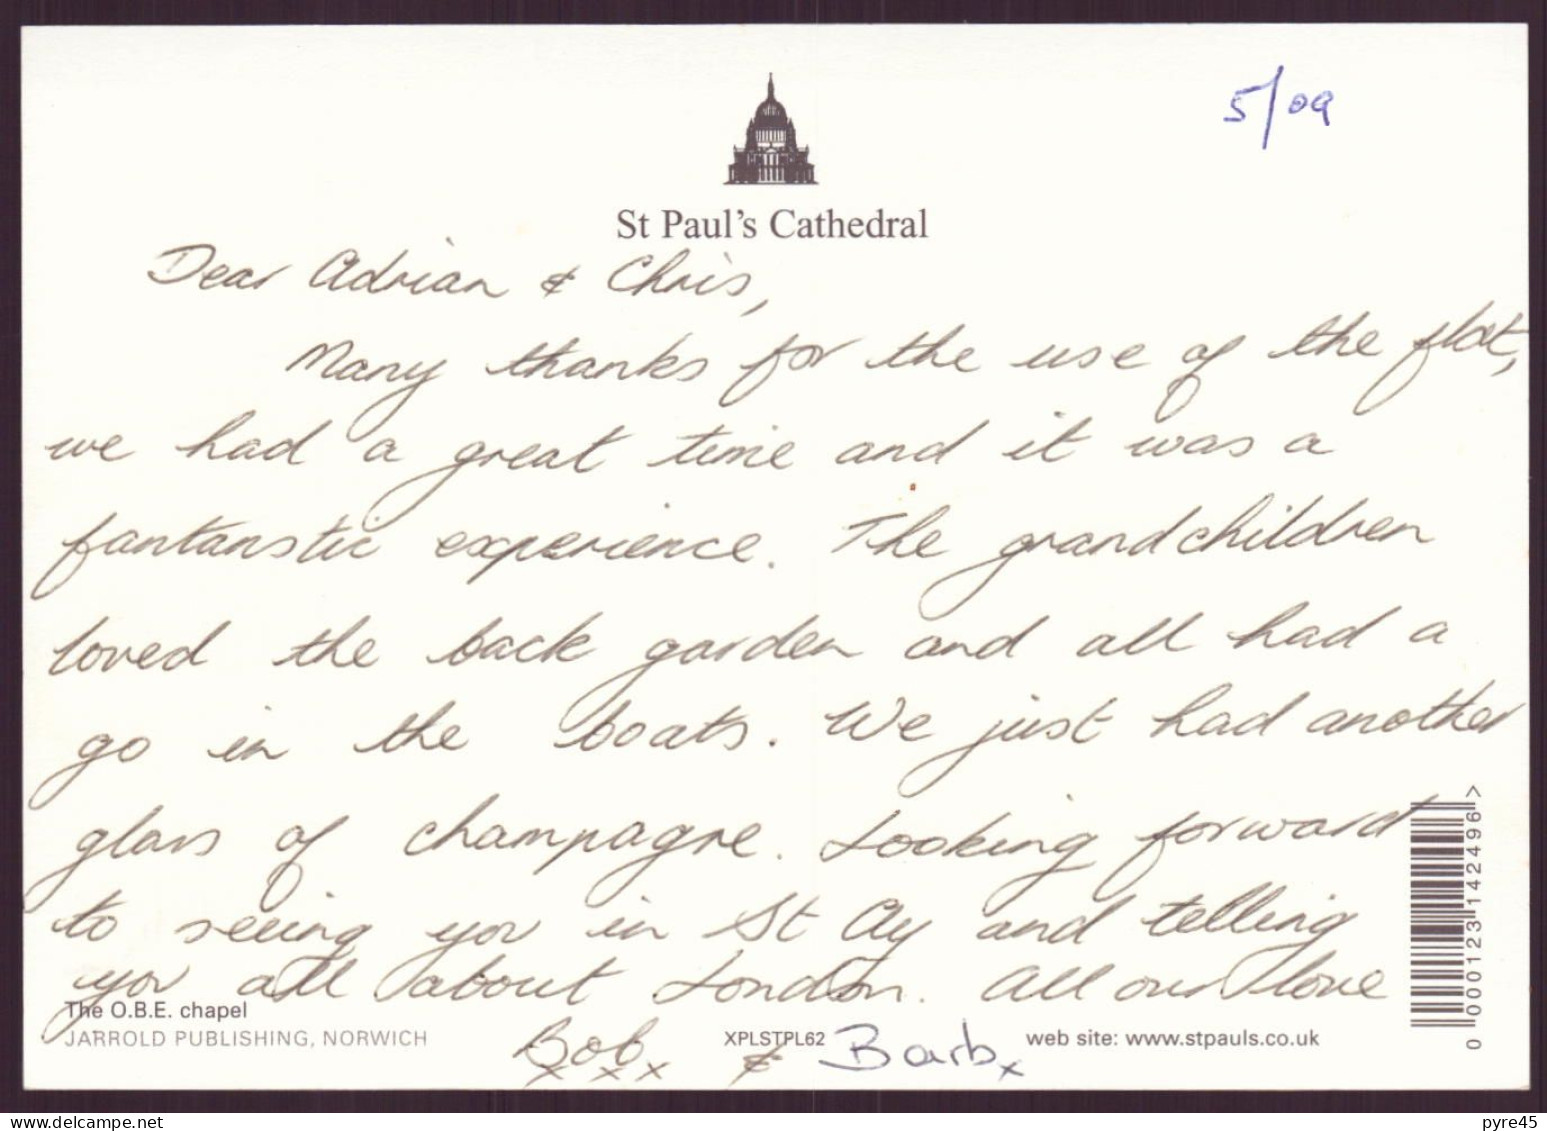 5/09
St Paul's Cathedral
Dear Adrian & Chris,
Many thanks for the use of the flat,
we had a great time and it was a
fantanstic experience. The grandchildren
loved the back garden and all had a
go in the boats. We just had another
glass of champagne. Looking forward
to seeing you in St Ay and telling
you all about London. All our love
Bob xxx & Barb x
The O.B.E. chapel
JARROLD PUBLISHING, NORWICH
XPLSTPL62
web site: www.stpauls.co.uk
0 000123 142496 >
www.delcampe.net
pyre45